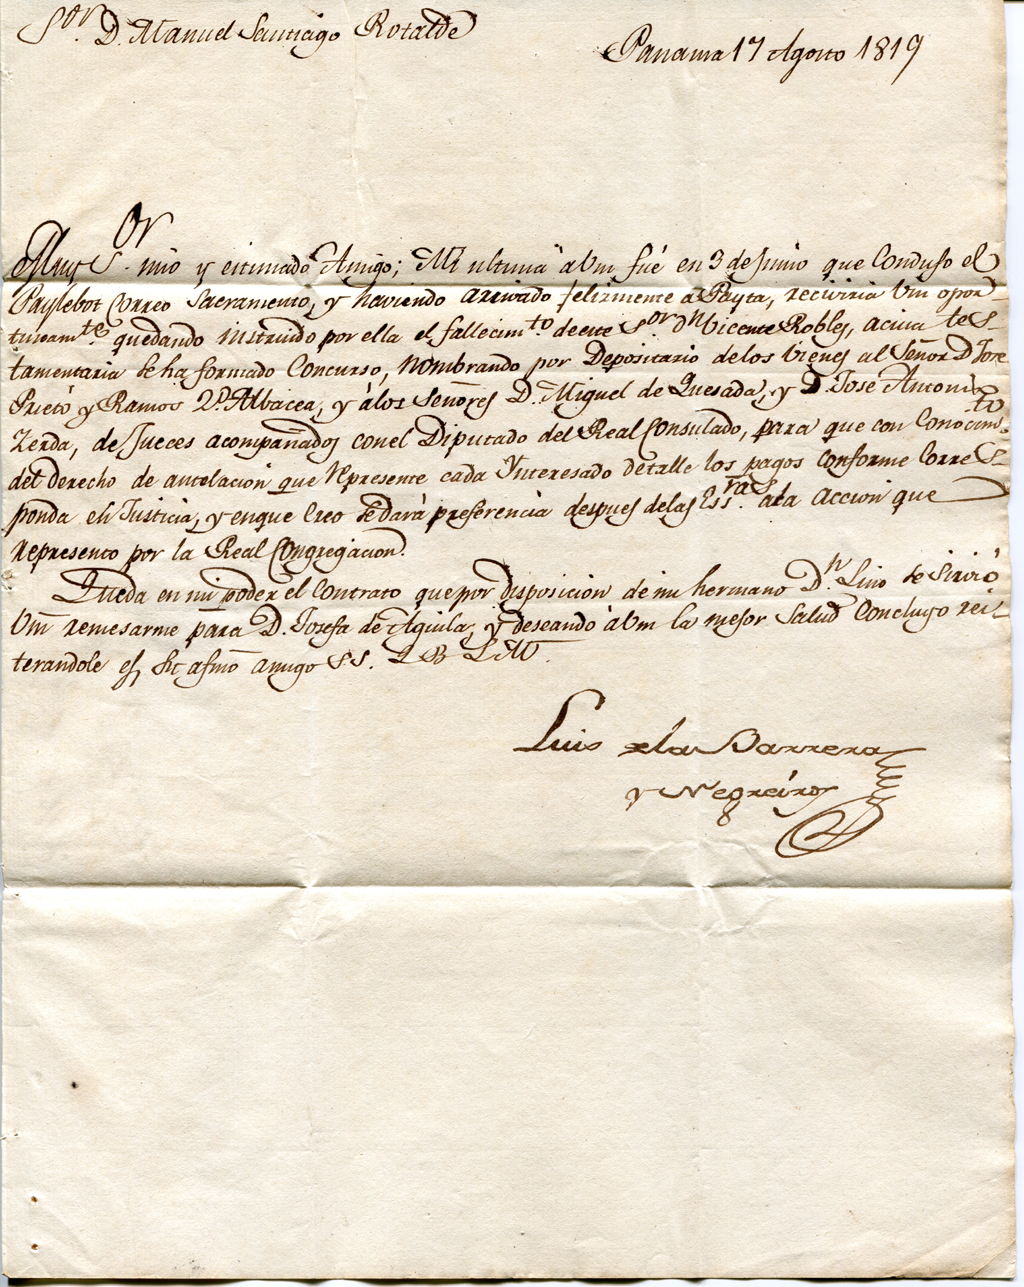 Sor. D. Manuel Santiago Rotalde
Panama 17 Agosto 1819
Muy Sor. mio y estimado Amigo; Mi ultima à Vm fué en 3 de Junio que Condujo el
Paylebot Correo Sacramento, y haviendo arrivado felizmente a Payta, reciviria Vm opor
tunamte. quedando instruido por ella el fallecimto. de este Sor. Dn Vicente Robles, a cuia tes
tamentaria se ha formado Concurso, nombrando por Depositario de los bienes al Señor D. Jose
Prieto y Ramos 2º. Albacea, y à los Señores D. Miguel de Quesada, y D. José Antonio
Zerda, de Jueces acompañados con el Diputado del Real Consulado, para que con Conocimto
del derecho de antelacion que represente cada Ynteresado detalle los pagos conforme Corres
ponda en Justicia, y en que Creo se dará preferencia despues de las à la accion que
represento por la Real Congregacion.
Queda en mi poder el Contrato que por disposicion de mi hermano Dn. Lino se Sirvió
Vm remesarme para D. Josefa de Aguila, y deseando à Vm la mejor Salud Concluyo rei-
terandole es su afmo amigo SS. Q B L M.
Luis de la Barrera
y Negreiros